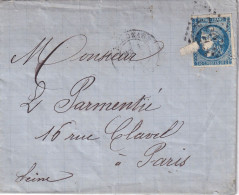 Monsieur
L Parmentié
16 rue Clavel
à Paris
Seine